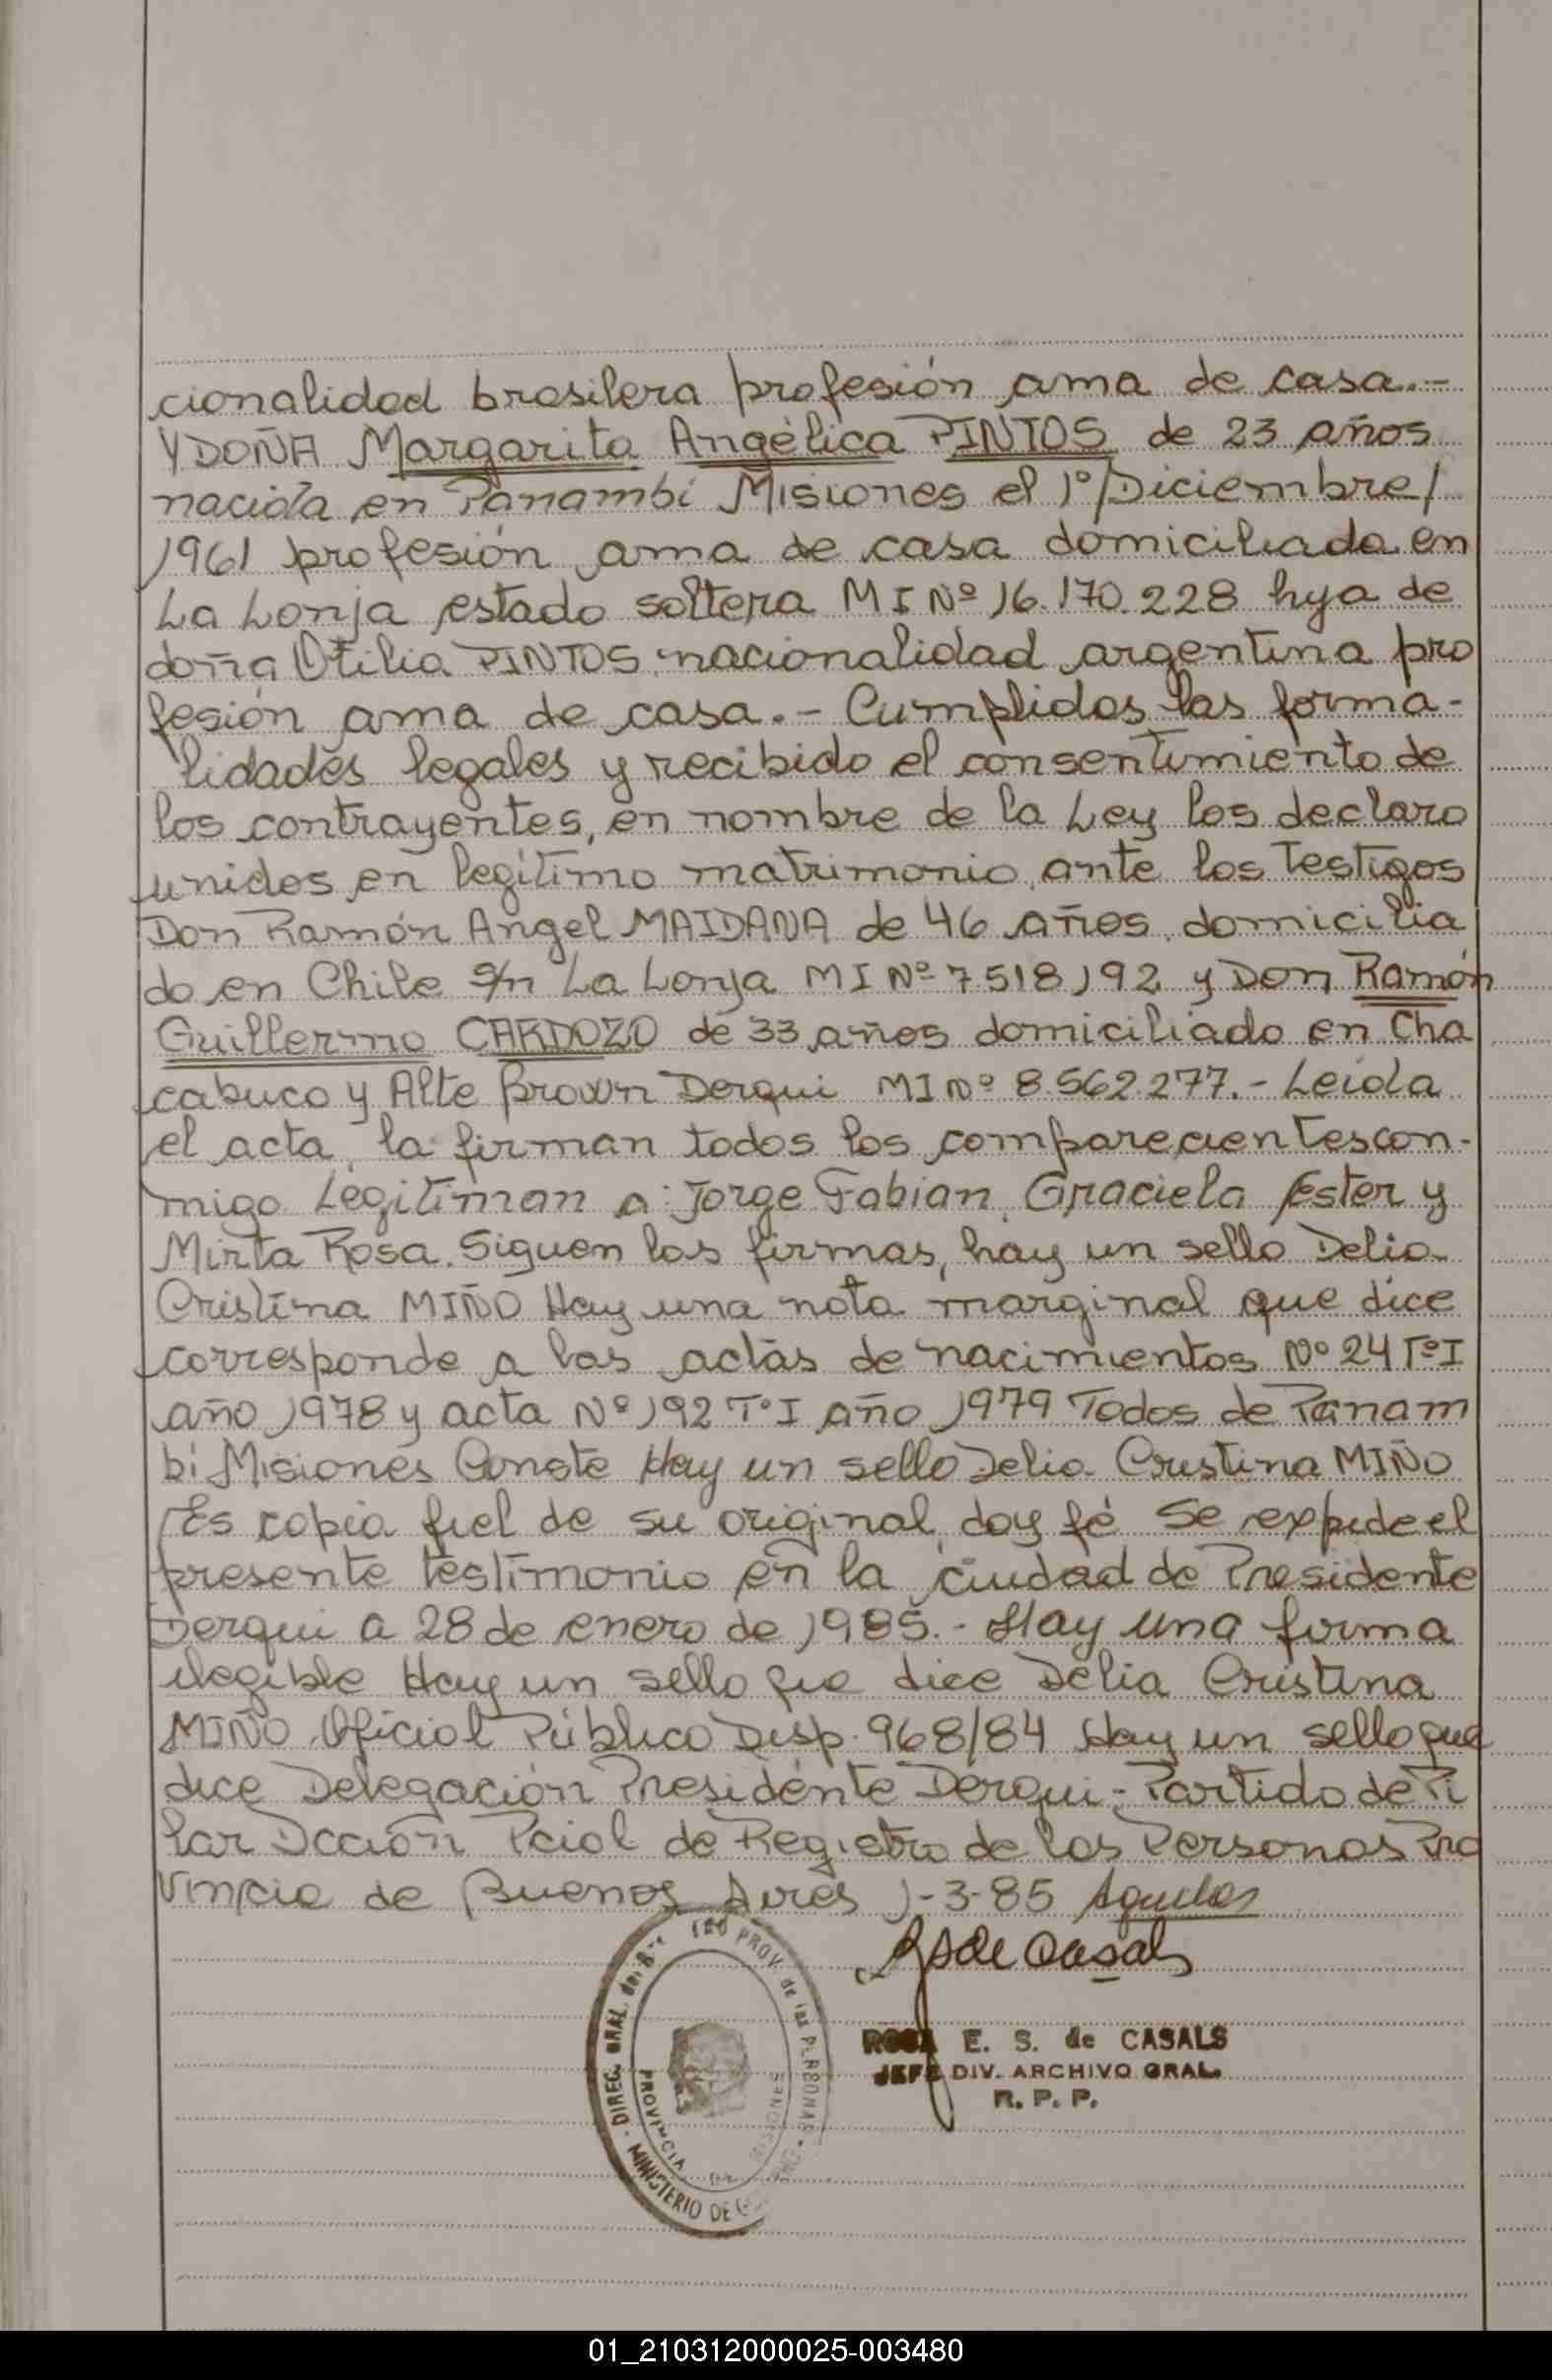 cionalidad brasilera profesión ama de casa.-
Y DOÑA Margarita Angélica PINTOS de 23 años
nacida en Panambí Misiones el 1º/Diciembre/
1961 profesión ama de casa domiciliada en
La Lonja estado soltera MI Nº 16.170.228 hija de
doña Otilia PINTOS nacionalidad argentina pro
fesión ama de casa.- Cumplidas las forma-
lidades legales y recibido el consentimiento de
los contrayentes, en nombre de la Ley los declaro
unidos en legítimo matrimonio, ante los testigos
Don Ramón Angel MAIDANA de 46 años, domicilia
do en Chile s/n La Lonja MI Nº 7518192 y Don Ramón
Guillermo CARDOZO de 33 años domiciliado en Cha
cabuco y Alte Brown Derqui MI Nº 8.562.277.- Leída
el acta, la firman todos los comparecientes con-
migo Legitiman a: Jorge Fabian, Graciela Ester y
Mirta Rosa. Siguen las firmas, hay un sello Delia
Cristina MIÑO Hay una nota marginal que dice
corresponde a las actas de nacimientos Nº 24 Tº I
año 1978 y acta Nº 192 Tº I año 1979 Todos de Panam
bí Misiones Conste Hay un sello Delia Cristina MIÑO
Es copia fiel de su original, doy fé Se expide el
presente testimonio en la ciudad de Presidente
Derqui a 28 de enero de 1985.- Hay una firma
ilegible Hay un sello que dice Delia Cristina
MIÑO Oficial Público Disp. 968/84 Hay un sello que
dice Delegación Presidente Derqui - Partido de Pi
lar Dcción Pcial de Registro de las Personas Pro
vincia de Buenos Aires 1-3-85
ROSA E. S. de CASALS
JEFE DIV. ARCHIVO GRAL.
R. P. P.
DIREC. GRAL. del PROV. de las PERSONAS
MINISTERIO DE
PROVINCIA MISIONES
01_210312000025-003480